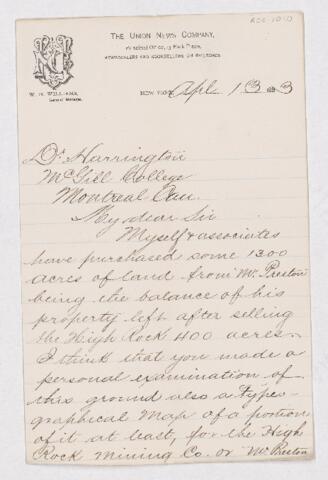 THE UNION NEWS COMPANY,
NEWSDEALERS AND BOOKSELLERS ON RAILROADS
W. H. WILLIAMS,
General Manager.
NEW YORK, Apl 13 1883
Dr Harrington
McGill College
Montreal Can.
My dear Sir
Myself & associates
have purchased some 1300
acres of land from Mr Preston
being the balance of his
property left after selling
the High Rock 400 acres.
I think that you made a
personal examination of
this ground also a typo-
graphical Map of a portion
of it at least, for the High
Rock Mining Co. or Mr Preston